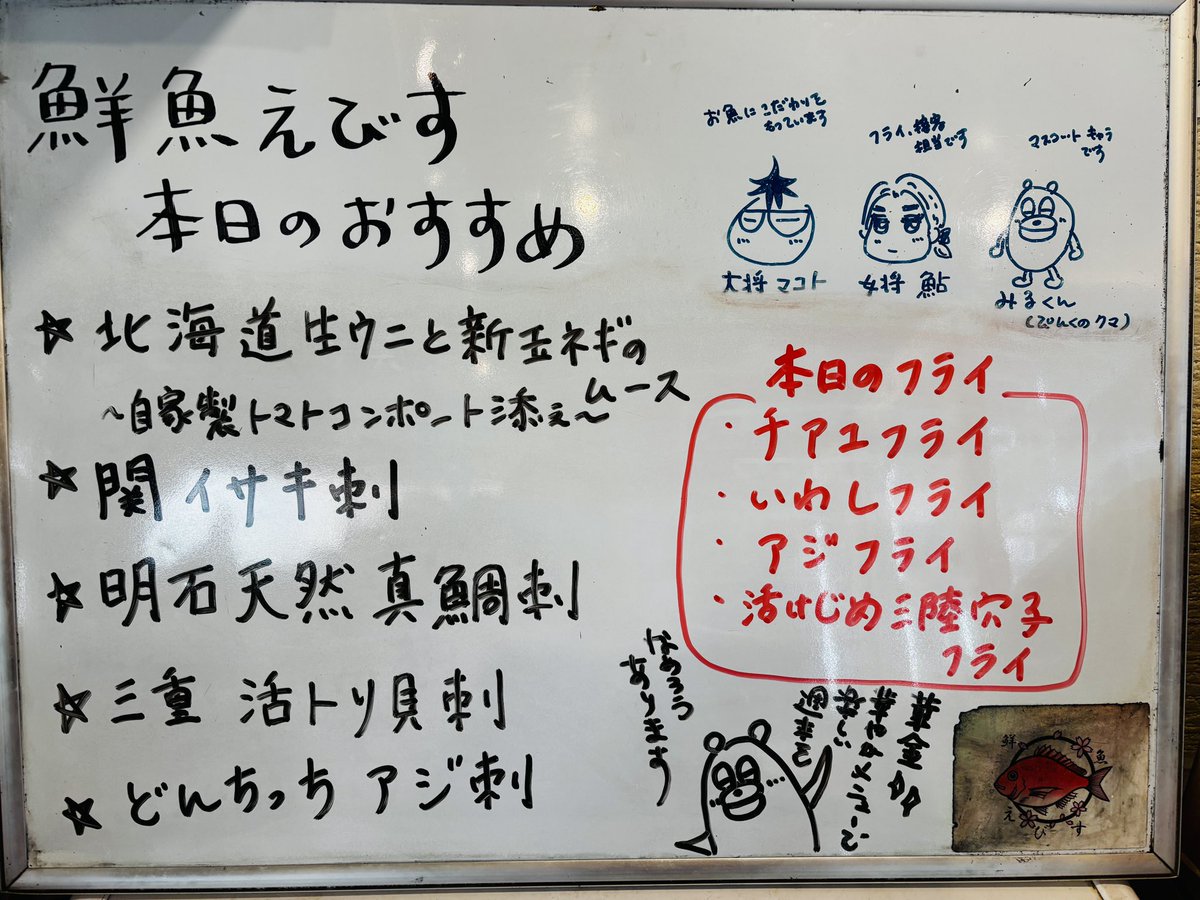 鮮魚えびす
本日のおすすめ
☆北海道生ウニと新玉ネギの
ムース
~自家製トマトコンポート添え~
☆関イサキ刺
☆明石天然真鯛刺
☆三重 活トリ貝刺
☆どんちっち アジ刺
お魚にこだわりを
もっています
大将 マコト
フライ、接客
担当です
女将 鮎
マスコットキャラ
です
みるくん
(ぴんくのクマ)
本日のフライ
・チアユフライ
・いわしフライ
・アジフライ
・活けじめ三陸穴子
フライ
なめろう
あります
華金
華やかメニューで
楽しい
週末を
鮮魚
えびす